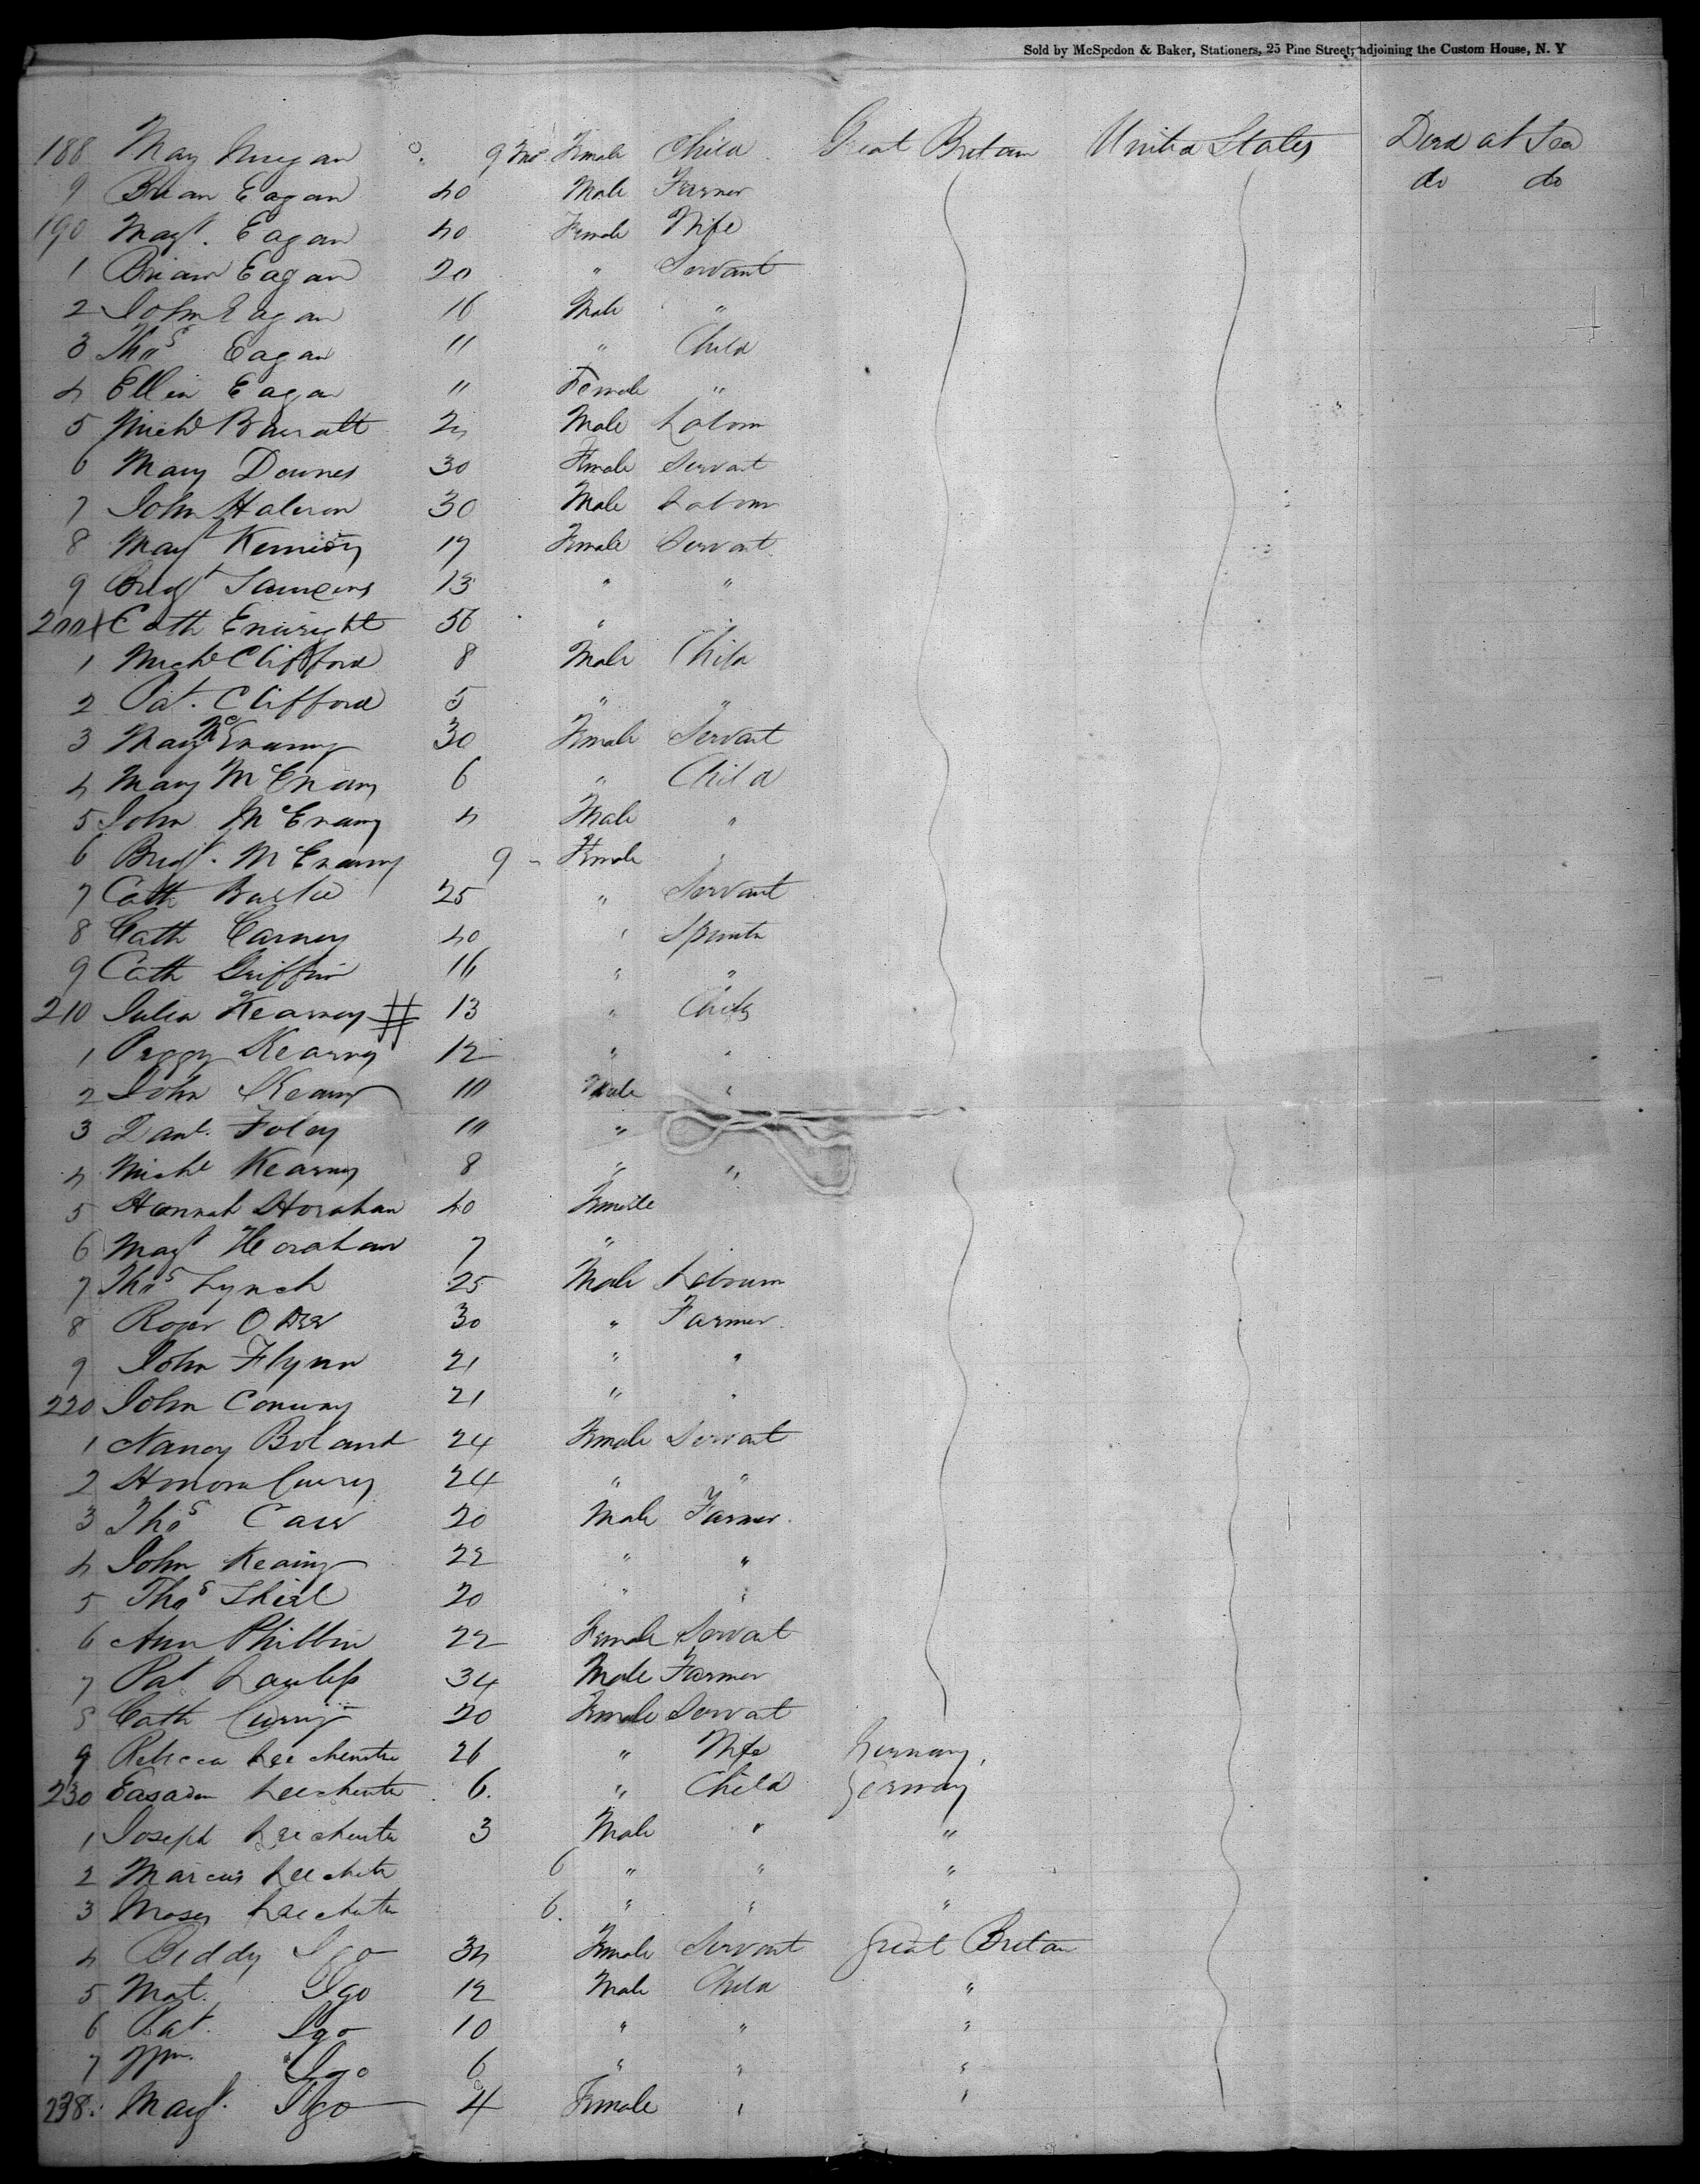 Sold by McSpedon & Baker, Stationers, 25 Pine Street, adjoining the Custom House, N. Y
188 May 9 Mos Female Child Great Britain United States Died at Sea
9 Brian Eagan 40 Male Farmer do do
190 Magt. Eagan 40 Female Wife
1 Brian Eagan 20 " Servant
2 John Eagan 16 Male "
3 Thos Eagan 11 " Child
4 Ellen Eagan " Female "
5 Michl Male Labour
6 Mary Downes 30 Female Servant
7 John 30 Male Labour
8 Magt Kennedy 17 Female Servant
9 Bridgt 13 " "
200 Cath Enright 56 " "
1 Michl Clifford 8 Male Child
2 Pat. Clifford 5 " "
3 Mary 30 Female Servant
4 Mary McEnany 6 " Child
5 John McEnany 4 Male "
6 Bridgt. McEnany 9 " Female "
7 Cath 25 " Servant
8 Cath Carney 40 "
9 Cath Griffin 16 " "
210 Julia Kearney # 13 " Child
1 Peggy Kearny 12 " "
2 John Kearny 10 Male "
3 Danl. Foley 10 "
4 Michl Kearny 8 " "
5 Hannah Horahan 40 Female
6 Magt Horahan 7 "
7 Thos Lynch 25 Male
8 Roger 30 " Farmer
9 John Flynn 21 " "
220 John Conway 21 " "
1 Nancy Boland 24 Female Servant
2 Honora 24 " "
3 Thos 20 Male Farmer
4 John 22 " "
5 Thos Shiel 20 " "
6 Ann Philbin 22 Female Servant
7 Pat Lawless 34 Male Farmer
8 Cath 20 Female Servant
9 Rebecca 26 " Wife Germany
230 6 " Child Germany
1 Joseph 3 Male " "
2 Marcus 6 " " "
3 Moses 6 " " "
4 Biddy Igo 34 Female Servant Great Britain
5 Mat. Igo 12 Male Child "
6 Pat. Igo 10 " " "
7 Wm. Igo 6 " " "
238 Magt. Igo 4 Female " "